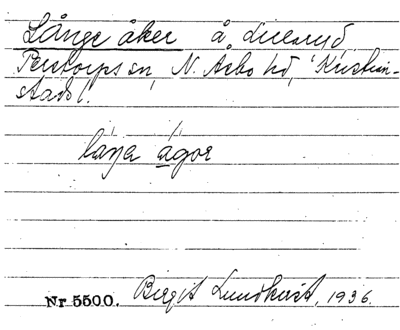 Långe åker å
Perstorps sn, N. Åsbo hd, Kristian-
stads l.
låŋa ågor
Nr 5500. Birgit Lundkvist, 1936.